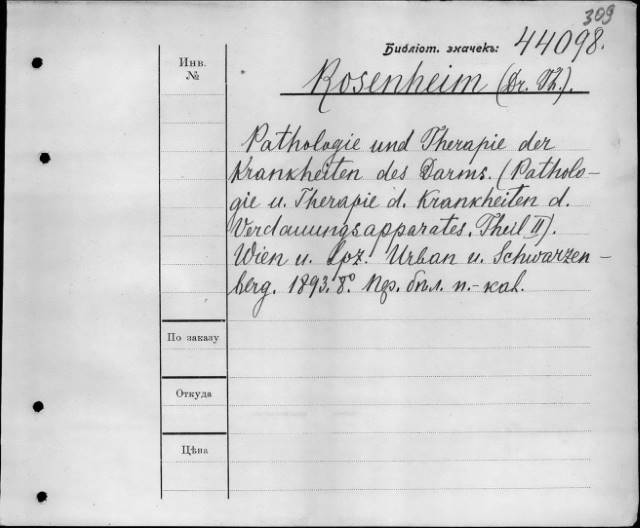 309
Библіот. значекъ: 44098.
Инв.
№
Rosenheim (Dr. Th.).
Pathologie und Therapie der
Krankheiten des Darms. (Patholo-
gie u. Therapie d. Krankheiten d.
Verdauungsapparates, Theil II).
Wien u. Lpz. Urban u. Schwarzen-
berg. 1893. 8°.
По заказу
Откуда
Цѣна